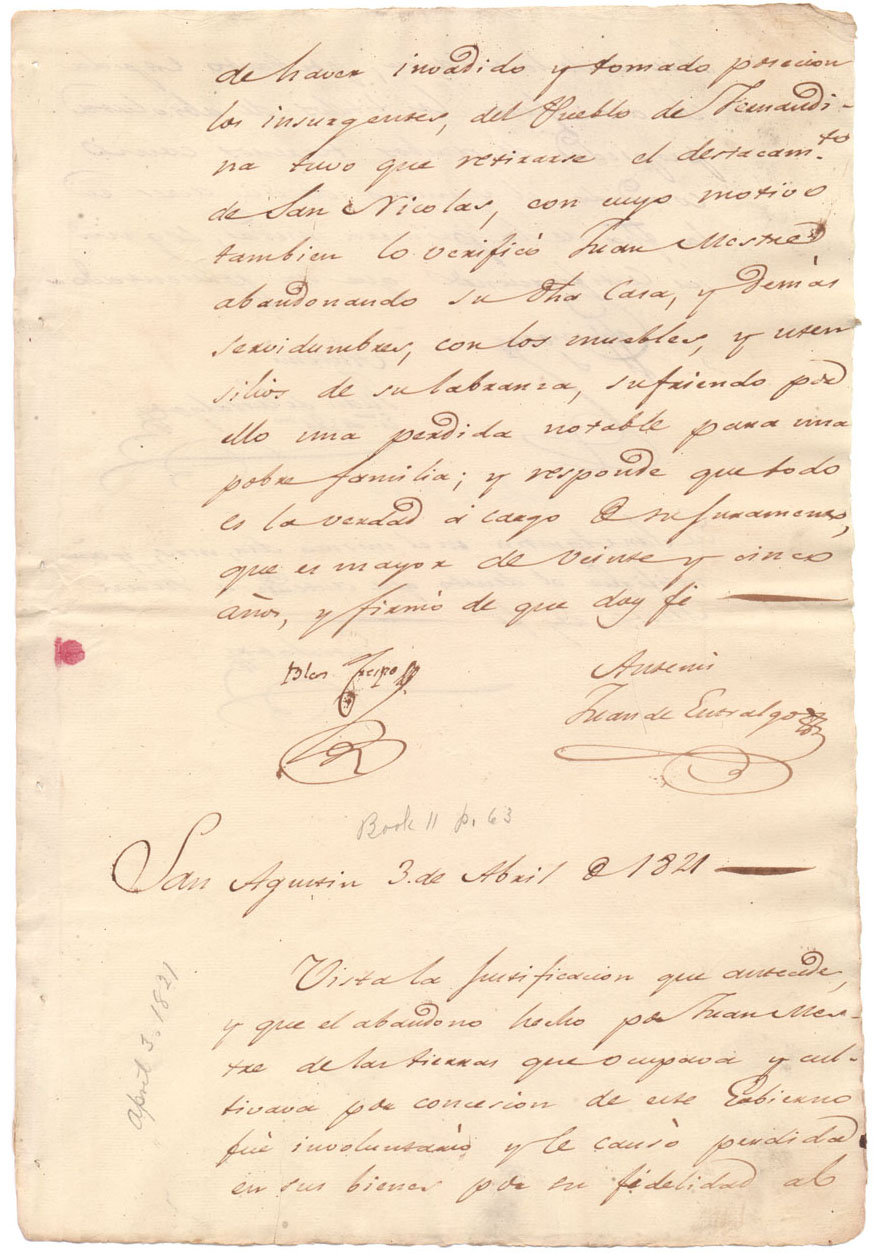 de haver invadido y tomado posecion
los insurgentes, del Pueblo de Fernandi-
na tuvo que retirarse el destacam.to
de San Nicolas, con cuyo motivo
tambien lo verificò Juan Mestre
abandonando su dha Casa, y demàs
servidumbres, con los muebles, y uten
silios de su labranza, sufriendo por
ello una perdida notable para una
pobre familia; y responde que todo
es la verdad à cargo de su juramento,
que es mayor de veinte y cinco
años, y firmò de que doy fé
Antemi
Juan de Entralgo
Book 11 p. 63
San Agustin 3. de Abril de 1821
April 3, 1821
Vista la justificacion que antecede,
y que el abandono hecho por Juan Mes-
tre de las tierras que ocupava y cul-
tivava por concesion de este Gobierno
fuè involuntàrio y le causò perdida
en sus bienes por su fidelidad al